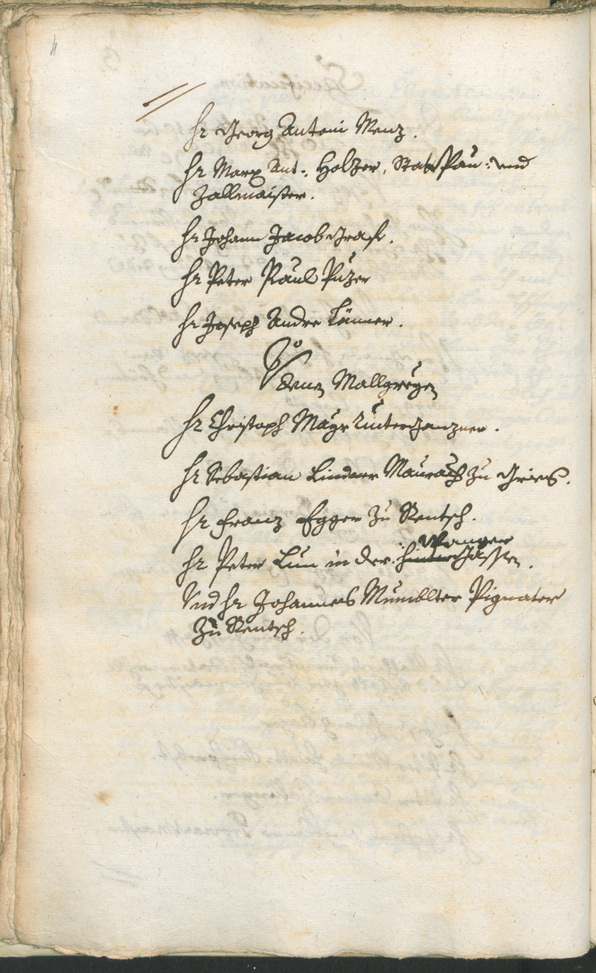 Hr Georg Antoni Menz.
Hr Marx Ant: Holzer, StattPau: und
Zallmaister.
Hr Johann Jacob Graff.
Hr Peter Paul Puzer
Hr Joseph Andre Länner.
Zu
denen Mallgreyen
Hr Christoph Mayr Unterganzner.
Hr Sebastian Lindner Maurach zu Gries.
Hr Franz Egger zu Rentsch.
Wanger
Hr Peter Lun in der hinter Gassen.
Und Hr Johannes Mumblter Pignater
Zu Rentsch.